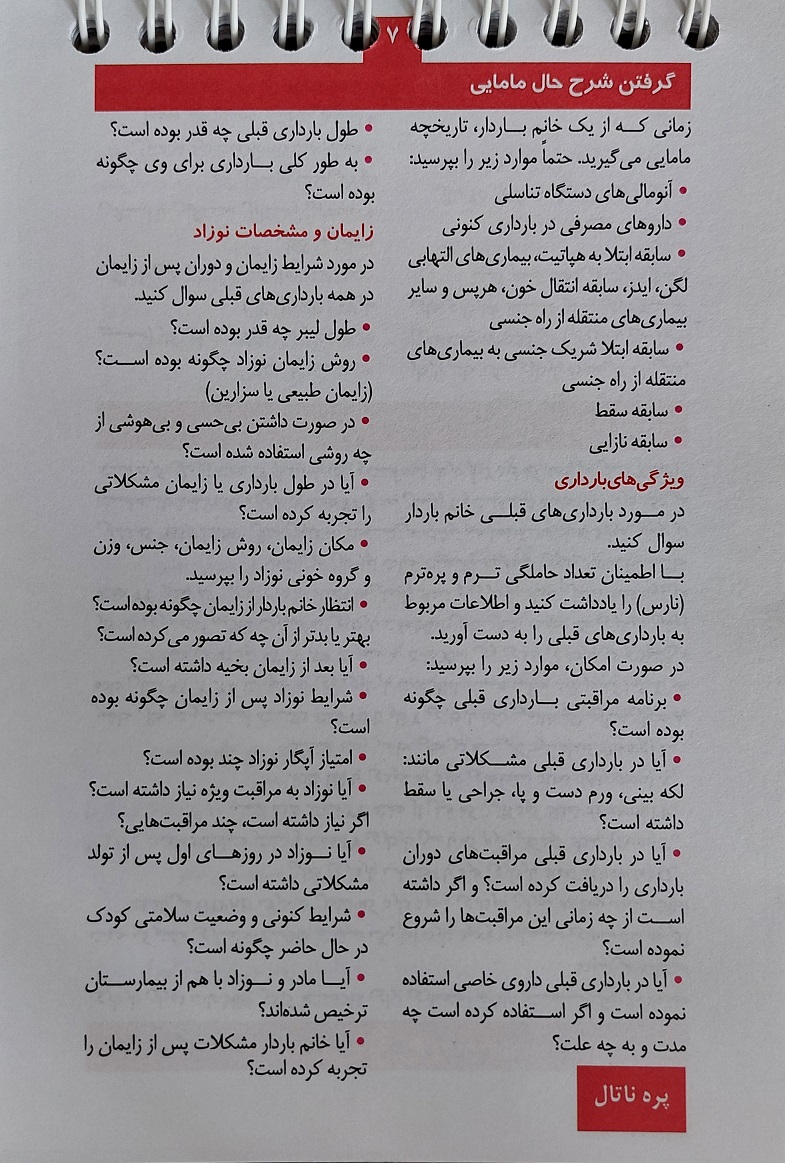 ۷
گرفتن شرح حال مامایی
زمانی که از یک خانم باردار، تاریخچه
مامایی می‌گیرید. حتماً موارد زیر را بپرسید:
• آنومالی‌های دستگاه تناسلی
• داروهای مصرفی در بارداری کنونی
• سابقه ابتلا به هپاتیت، بیماری‌های التهابی
لگن، ایدز، سابقه انتقال خون، هرپس و سایر
بیماری‌های منتقله از راه جنسی
• سابقه ابتلا شریک جنسی به بیماری‌های
منتقله از راه جنسی
• سابقه سقط
• سابقه نازایی
ویژگی‌های‌بارداری
در مورد بارداری‌های قبلی خانم باردار
سوال کنید.
با اطمینان تعداد حاملگی ترم و پره‌ترم
(نارس) را یادداشت کنید و اطلاعات مربوط
به بارداری‌های قبلی را به دست آورید.
در صورت امکان، موارد زیر را بپرسید:
• برنامه مراقبتی بارداری قبلی چگونه
بوده است؟
• آیا در بارداری قبلی مشکلاتی مانند:
لکه بینی، ورم دست و پا، جراحی یا سقط
داشته است؟
• آیا در بارداری قبلی مراقبت‌های دوران
بارداری را دریافت کرده است؟ و اگر داشته
است از چه زمانی این مراقبت‌ها را شروع
نموده است؟
• آیا در بارداری قبلی داروی خاصی استفاده
نموده است و اگر استفاده کرده است چه
مدت و به چه علت؟
• طول بارداری قبلی چه قدر بوده است؟
• به طور کلی بارداری برای وی چگونه
بوده است؟
زایمان و مشخصات نوزاد
در مورد شرایط زایمان و دوران پس از زایمان
در همه بارداری‌های قبلی سوال کنید.
• طول لیبر چه قدر بوده است؟
• روش زایمان نوزاد چگونه بوده است؟
(زایمان طبیعی یا سزارین)
• در صورت داشتن بی‌حسی و بی‌هوشی از
چه روشی استفاده شده است؟
• آیا در طول بارداری یا زایمان مشکلاتی
را تجربه کرده است؟
• مکان زایمان، روش زایمان، جنس، وزن
و گروه خونی نوزاد را بپرسید.
• انتظار خانم باردار از زایمان چگونه بوده است؟
بهتر یا بدتر از آن چه که تصور می‌کرده است؟
• آیا بعد از زایمان بخیه داشته است؟
• شرایط نوزاد پس از زایمان چگونه بوده
است؟
• امتیاز آپگار نوزاد چند بوده است؟
• آیا نوزاد به مراقبت ویژه نیاز داشته است؟
اگر نیاز داشته است، چند مراقبت‌هایی؟
• آیا نوزاد در روزهای اول پس از تولد
مشکلاتی داشته است؟
• شرایط کنونی و وضعیت سلامتی کودک
در حال حاضر چگونه است؟
• آیا مادر و نوزاد با هم از بیمارستان
ترخیص شده‌اند؟
• آیا خانم باردار مشکلات پس از زایمان را
تجربه کرده است؟
پره ناتال